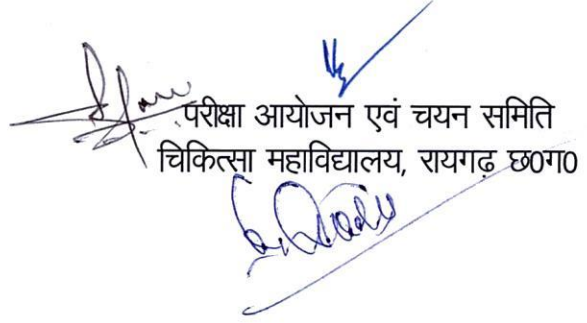 परीक्षा आयोजन एवं चयन समिति
चिकित्सा महाविद्यालय, रायगढ़ छ0ग0